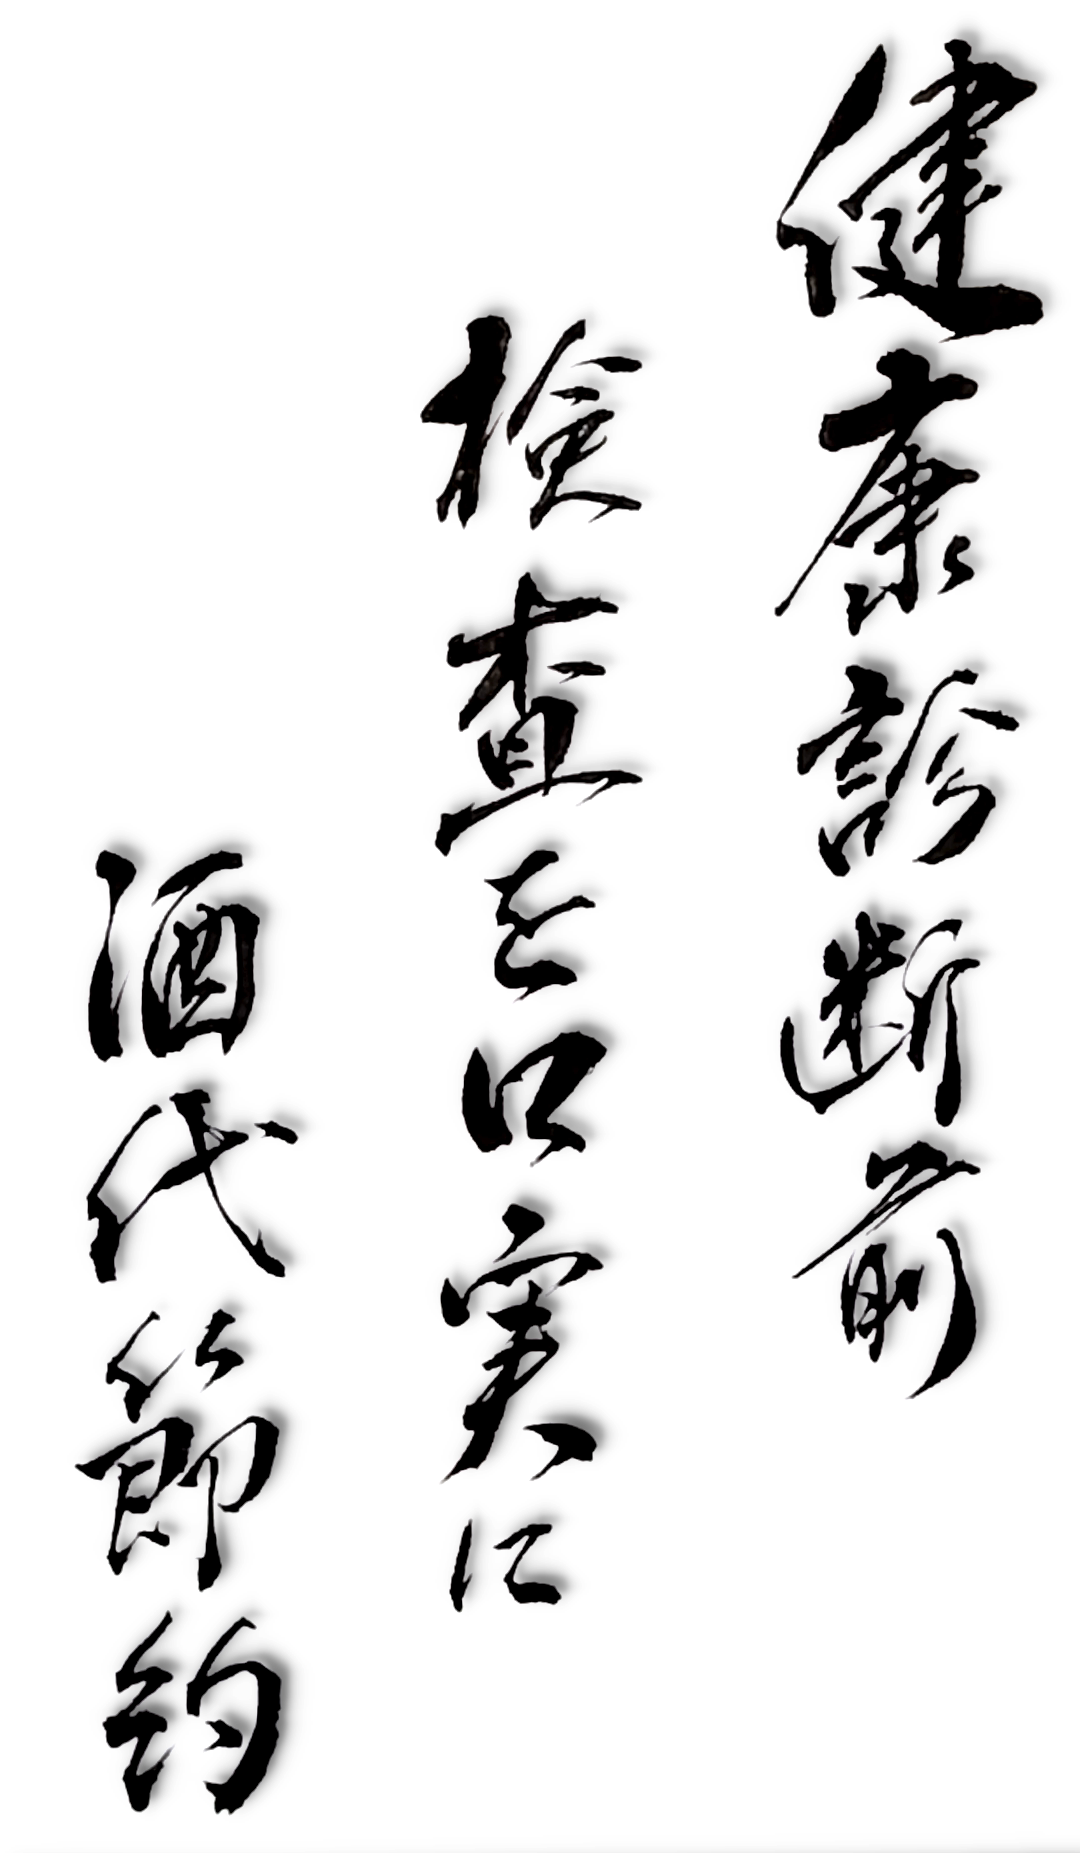 健康診断前
検査を口実に
酒代節約